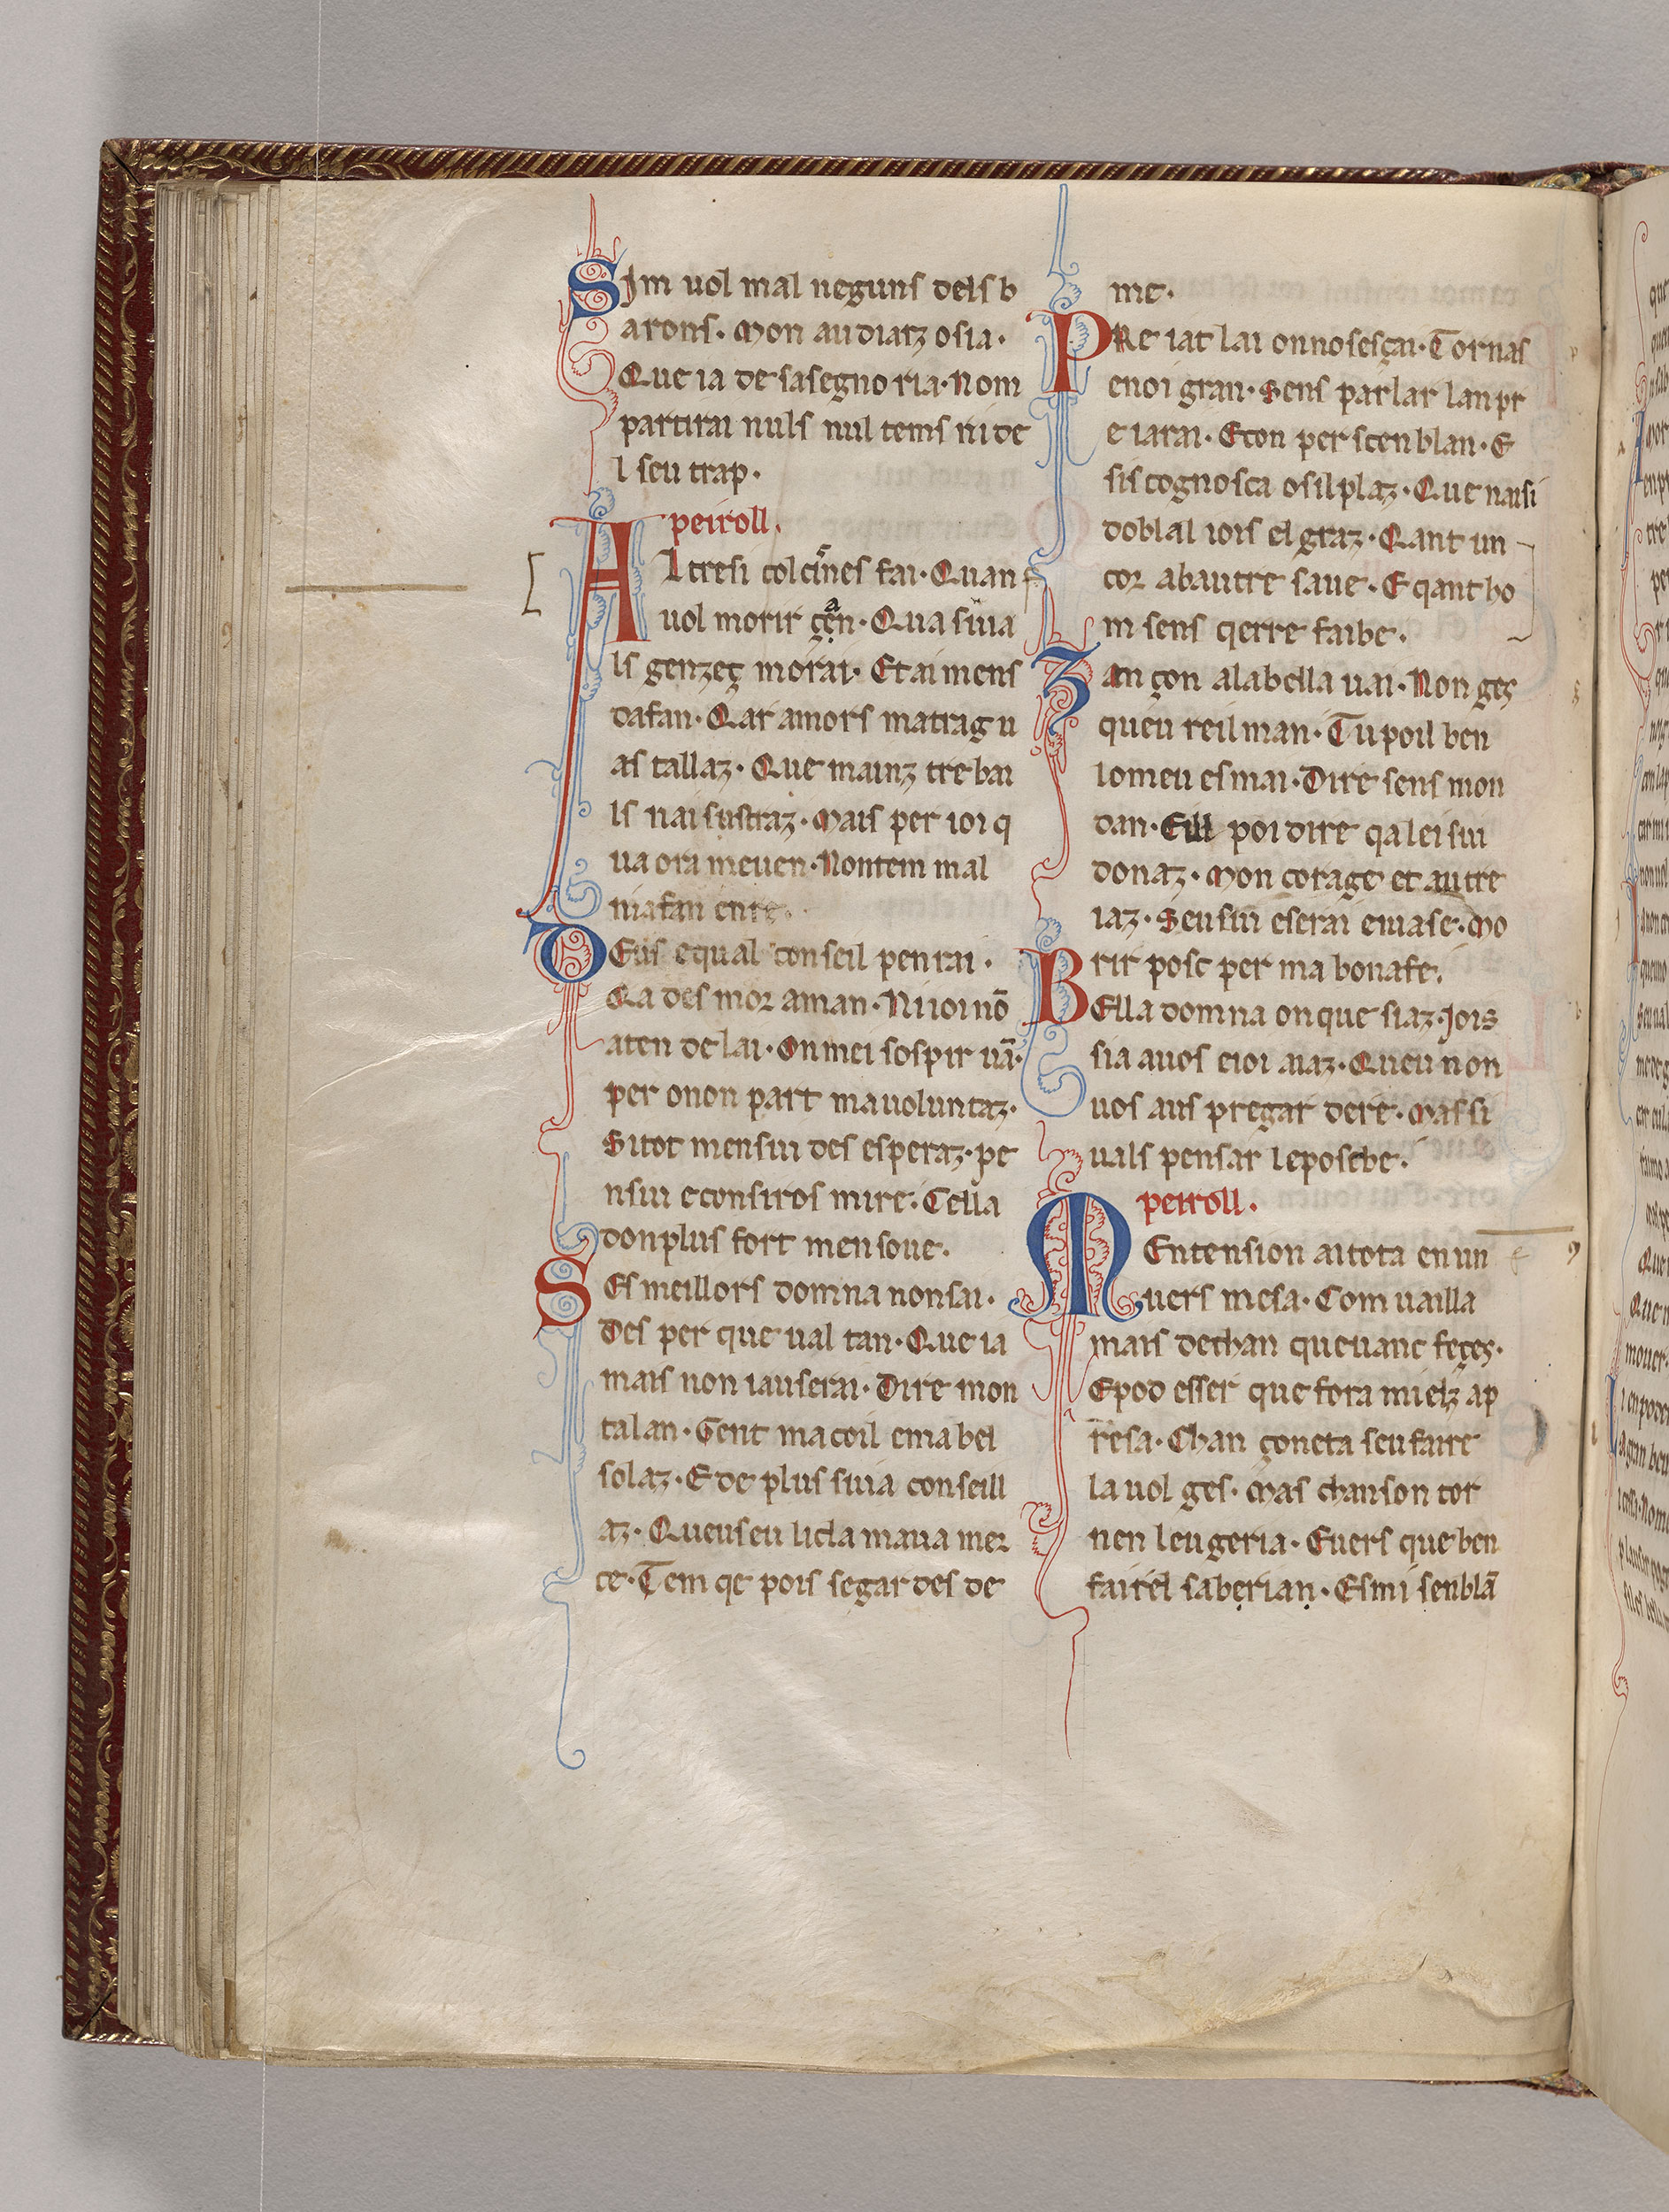 SIm uol mal neguns dels b
arons. Mon audiatz osia.
Que ia de sasegnoria. Nom
partirai nuls nul tems ni de
l seu trap.
peiroll.
Altresi colcines fai. Quan
uol morir çan. Qua siuia
ls genzeç morai. Et ai mens
dafan. Qar amors matrag u
as tallaz. Que mainz trebai
ls nai sustraz. Mais per ioi q
ua ora meuen. Non tem mal
ni afan enre.
DEus e qual conseil penrai.
Qa des mor aman. Ni ioi nō
aten de lai. On mei sospir uā.
per onon part ma uoluntaz.
Sitot mensui des esperaz. pe
nsiu e consiros mire. Cella
don plus fort mensoue.
SEs meillors domna non sai.
Des per que ual tan. Que ia
mais non iauserai. Dire mon
talan. Gent macoil em a bel
solaz. E de plus siuia conseill
az. Queu seu licla maua mer
ce. Tem qe pois segardes de
me.
PRe iat lai on no sesçai. Tornas
enoi gran. Sens parlar lan pr
eiarai. Econ per scenblan. E
sis cognosca osil plaz. Que naisi
doblal iois el graz. Qant un
cor abautre saue. E qant ho
m sens qerre faibe.
Zan çon alabella uai. Non ges
queu reil man. Tu poil ben
lo meu esmai. Dire sens mon
dan. Eill poi dire qa lei sui
donaz. Mon corage et autre
iaz. Seu sui eserai emase. Mo
rir posc per ma bonafe.
BElla domna on que siaz. Jois
sia auos eioi aiaz. Queu non
uos aus pregar dere. Mas si
uals pensar leposcbe.
peiroll.
MEntension ai tota en un
uers mesa. Com uailla
mais dechan queuanc feçes.
Epod esser que fora mielz ap
resa. Chan çoneta seu faire
la uol ges. Mas chanson tor
nen leugeria. Euers que ben
fairel saberian. Es mi senblā